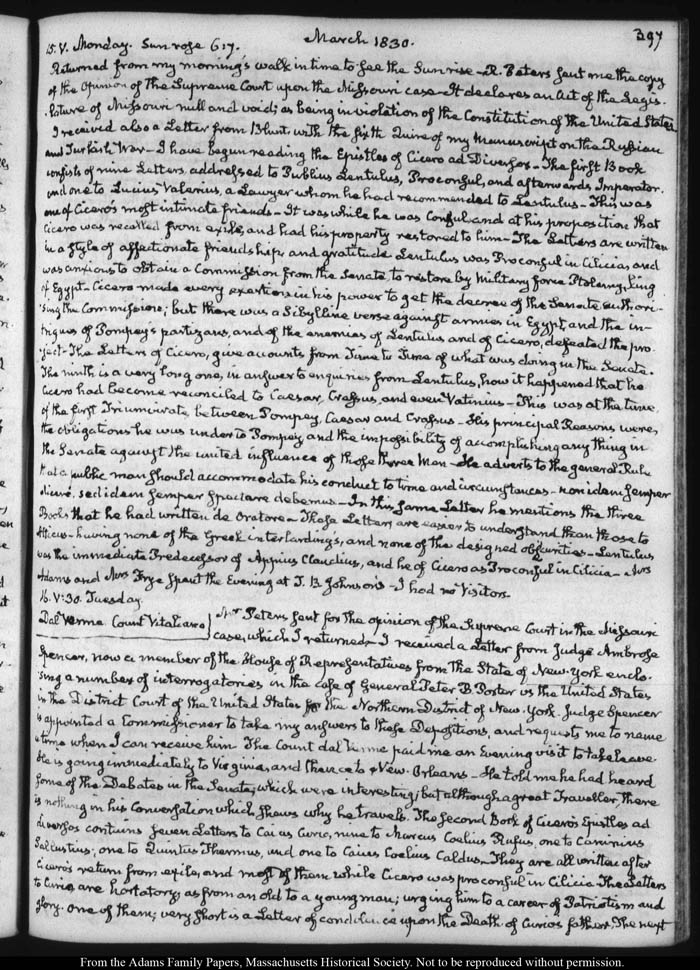 March 1830.
397
15. V. Monday. Sun rose 6:17.
Returned from my morning's walk in time to see the Sun rise — R. Peters sent me the copy
of the Opinion of the Supreme Court upon the Missouri case — It declares an Act of the Legis-
lature of Missouri null and void; as being in violation of the Constitution of the United States
I received also a Letter from Blunt with the fifth Quire of my Manuscript on the Russian
and Turkish War — I have begun reading the Epistles of Cicero ad Diversos — The first Book
consists of nine Letters addressed to Publius Lentulus, Proconsul, and afterwards Imperator.
and one to Lucius Valerius, a Lawyer whom he had recommended to Lentulus — This was
one of Cicero's most intimate friends — It was while he was Consul and at his proposition that
Cicero was recalled from exile, and had his property restored to him — The Letters are written
in a style of affectionate friendship, and gratitude. Lentulus was Proconsul in Cilicia, and
was anxious to obtain a Commission from the Senate to restore by Military force Ptolemy, King
of Egypt — Cicero made every exertion in his power to get the decree of the Senate authori-
sing the Commission; but there was a Sibylline verse against armies in Egypt, and the in-
trigues of Pompey's partizans, and of the enemies of Lentulus and of Cicero, defeated the pro-
ject — The Letters of Cicero, give accounts from Time to Time of what was doing in the Senate.
The ninth is a very long one, in answer to enquiries from Lentulus, how it happened that he
Cicero had become reconciled to Caesar, Crassus, and even Vatinius — This was at the time
of the first Triumvirate, between Pompey, Caesar and Crassus — His principal Reasons were,
the obligations he was under to Pompey, and the impossibility of accomplishing any thing in
the Senate against the united influence of those three Men — He adverts to the general Rule
that a public man should accommodate his conduct to time and circumstances — non idem semper
dicere, sed idem semper spectare debemus — In this same Letter he mentions the three
Books that he had written de Oratore — These Letters are easier to understand than those to
Atticus — having none of the Greek interlardings, and none of the designed obscurities — Lentulus
was the immediate Predecessor of Appius Claudius, and he of Cicero as Proconsul in Cilicia — Mrs
Adams and Mrs Frye spent the Evening at T. B. Johnson's — I had no Visitors.
16. V:30. Tuesday.
Dal Verme Count Vitaliano
Mr Peters sent for the opinion of the Supreme Court in the Missouri
case, which I returned — I received a Letter from Judge Ambrose
Spencer, now a member of the House of Representatives from the State of New-York enclo-
sing a number of interrogatories in the case of General Peter B. Porter vs the United States
in the District Court of the United States for the Northern District of New-York. Judge Spencer
is appointed a Commissioner to take my answers to these Depositions, and requests me to name
a time when I can receive him. The Count dal Verme paid me an Evening visit to take leave
He is going immediately to Virginia, and thence to New-Orleans — He told me he had heard
some of the Debates in the Senate, which were interesting; but although a great Traveller there
is nothing in his Conversation which shews why he travels. The second Book of Cicero's Epistles ad
diversos contains seven Letters to Caius Curio, nine to Marcus Coelius Rufus, one to Caninius
Sallustius, one to Quintus Thermus, and one to Caius Coelius Caldus — They are all written after
Cicero's return from exile, and most of them while Cicero was proconsul in Cilicia. The Letters
to Curio, are hortatory, as from an old to a young man; urging him to a career of Patriotism and
glory. One of them, very short is a Letter of condolence upon the Death of Curio's father. The next
From the Adams Family Papers, Massachusetts Historical Society. Not to be reproduced without permission.